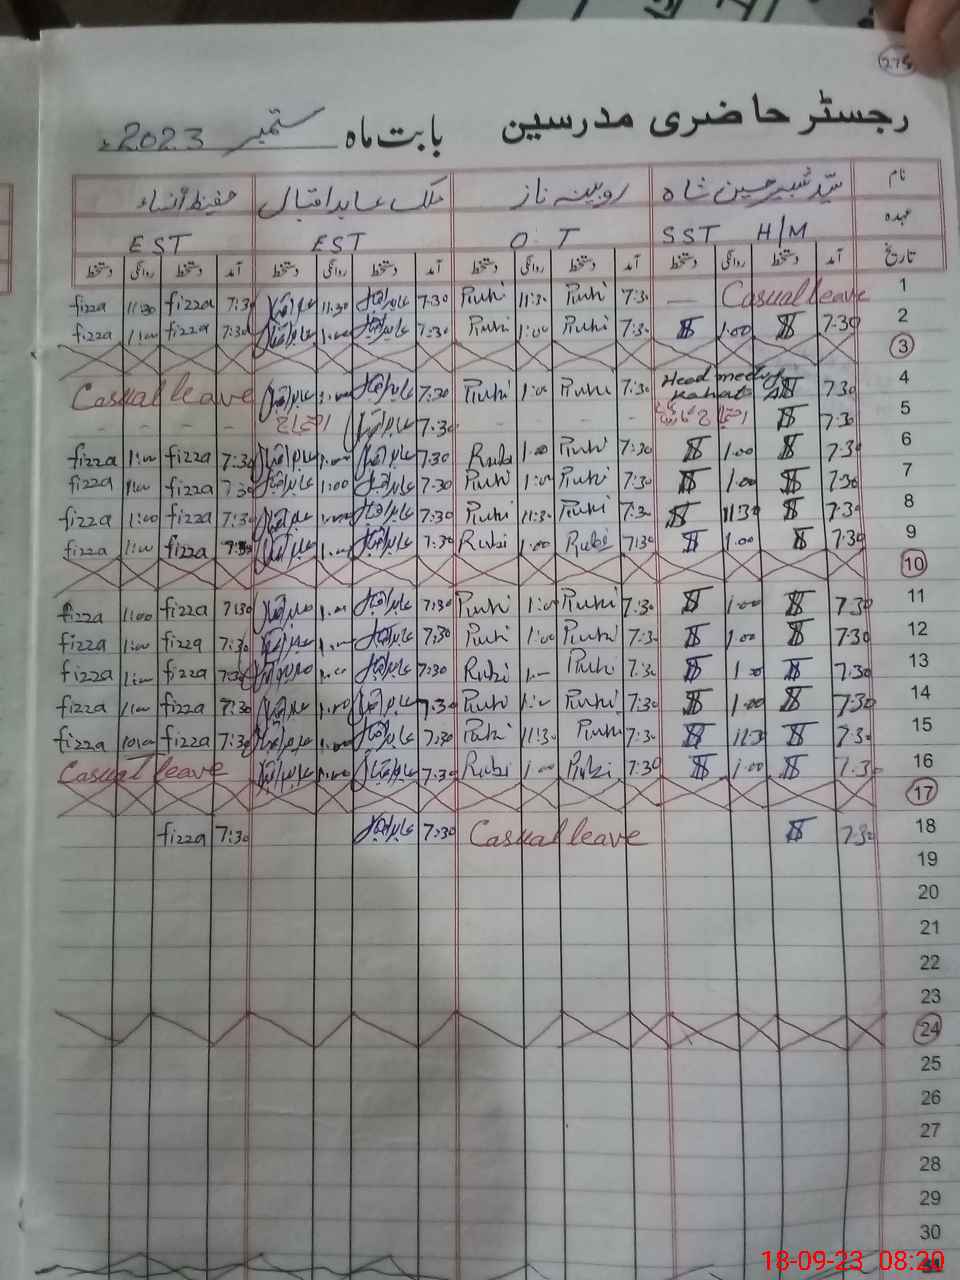 275
رجسٹر حاضری مدرسین بابت ماہ ستمبر 2023ء
نام سید شبیر حسین شاہ روبینہ ناز ملک عابد اقبال حفیظ النساء
عہدہ SST H/M O.T EST EST
تاریخ آمد دستخط روانگی دستخط آمد دستخط روانگی دستخط آمد دستخط روانگی دستخط آمد دستخط روانگی دستخط
1 Casual leave — 7:30 11:30 7:30 عابد اقبال 11:30 عابد اقبال 7:30 fizza 11:30 fizza
2 7:30 1:00 7:30 1:00 7:30 عابد اقبال 1:00 عابد اقبال 7:30 fizza 1:00 fizza
3
4 7:30 Head meeting 7:30 1:00 7:30 عابد اقبال 1:00 عابد اقبال Casual leave
5 7:30 احتجاج - - - - 7:30 عابد اقبال احتجاج - - - -
6 7:30 1:00 7:30 1:00 Rubi 7:30 عابد اقبال 1:00 عابد اقبال 7:30 fizza 1:00 fizza
7 7:30 1:00 7:30 1:00 7:30 عابد اقبال 1:00 عابد اقبال 7:30 fizza 1:00 fizza
8 7:30 11:30 7:30 11:30 7:30 عابد اقبال 1:00 عابد اقبال 7:30 fizza 1:00 fizza
9 7:30 1:00 7:30 Rubi 1:00 Rubi 7:30 عابد اقبال 1:00 عابد اقبال 7:30 fizza 1:00 fizza
10
11 7:30 1:00 7:30 1:00 7:30 عابد اقبال 1:00 عابد اقبال 7:30 fizza 1:00 fizza
12 7:30 1:00 7:30 1:00 7:30 عابد اقبال 1:00 عابد اقبال 7:30 fizza 1:00 fizza
13 7:30 1:00 7:30 1:00 Rubi 7:30 عابد اقبال 1:00 عابد اقبال 7:30 fizza 1:00 fizza
14 7:30 1:00 7:30 1:00 7:30 عابد اقبال 1:00 عابد اقبال 7:30 fizza 1:00 fizza
15 7:30 11:30 7:30 11:30 7:30 عابد اقبال 1:00 عابد اقبال 7:30 fizza fizza
16 7:30 1:00 7:30 Rubi 1:00 Rubi 7:30 عابد اقبال 1:00 عابد اقبال Casual leave
17
18 7:30 Casual leave 7:30 عابد اقبال 7:30 fizza
19
20
21
22
23
24
25
26
27
28
29
30
18-09-23 08:20